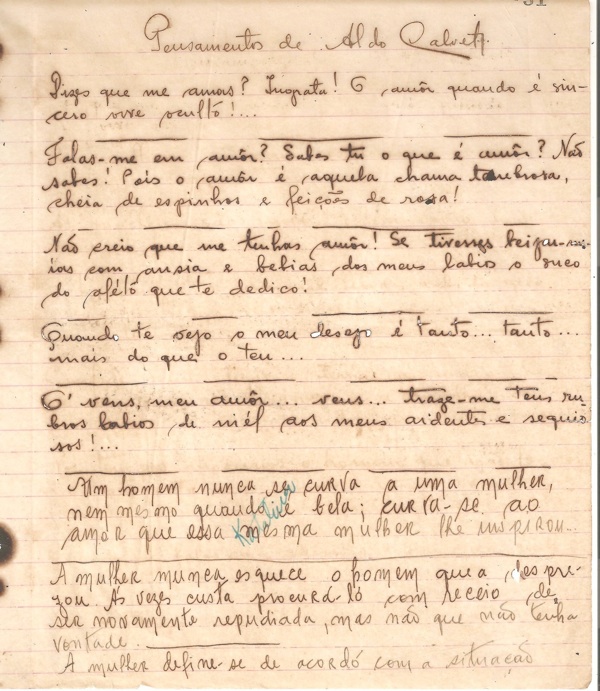 31
Pensamentos de Aldo Calvet
Dizes que me amas? Ingrata! O amôr quando é sin-
cero vive oculto!...
Falas-me em amôr? Sabes tu o que é amôr? Não
sabes! Pois o amôr é aquela chama tenebrosa,
cheia de espinhos e feições de rosa!
Não creio que me tenhas amôr! Se tivesses beijar-me-
ias com ansia e bebias dos meus labios o suco
do aféto que te dedico!
Quando te vejo o meu desejo é tanto... tanto...
mais do que o teu...
O' vens, meu amôr... vens... traze-me teus ru-
bros labios de mél aos meus ardentes e sequio
sos!...
Um homem nunca se curva a uma mulher,
nem mesmo quando é bela; curva-se ao
amor que essa mesma mulher lhe inspirou...
A mulher nunca esquece o homem que a despre-
zou. As vezes custa procura-lo com receio de
ser novamente repudiada, mas não que não tenha
vontade.
A mulher define-se de acordó com a situação